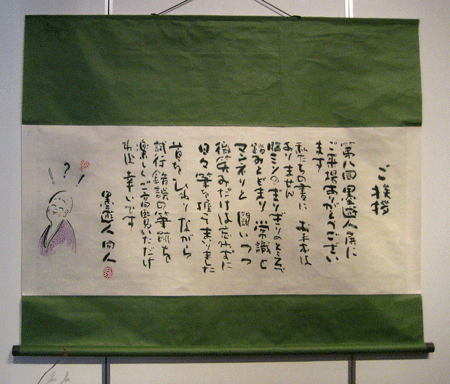 ご挨拶
第八回 墨遊人展に
ご来場ありがとうござい
ます
私たちの書に お手本は
ありません
脳ミソのぎりぎりのところで
踏みとどまり 常識と
マンネリズム 闘いつつ
微笑みだけは忘れずに
日々 筆を握ってまいりました
首をひねりながら
試行錯誤の筆跡を
楽しくご高覧いただけ
れば 幸いです
墨遊人同人
! ? !